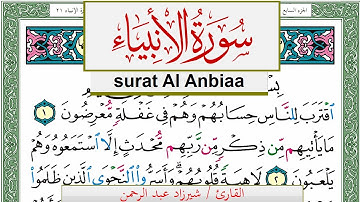 الجزء السابع
سورة الأنبياء ٢١
سُورَةُ الأَنْبِيَاء
surat Al Anbiaa
ٱقْتَرَبَ لِلنَّاسِ حِسَابُهُمْ وَهُمْ فِي غَفْلَةٍ مُّعْرِضُونَ ١
مَا يَأْتِيهِم مِّن ذِكْرٍ مِّن رَّبِّهِم مُّحْدَثٍ إِلَّا ٱسْتَمَعُوهُ وَهُمْ
يَلْعَبُونَ ٢ لَاهِيَةً قُلُوبُهُمْ وَأَسَرُّوا ٱلنَّجْوَى ٱلَّذِينَ ظَلَمُوا
القارئ / شيرزاد عبد الرحمن